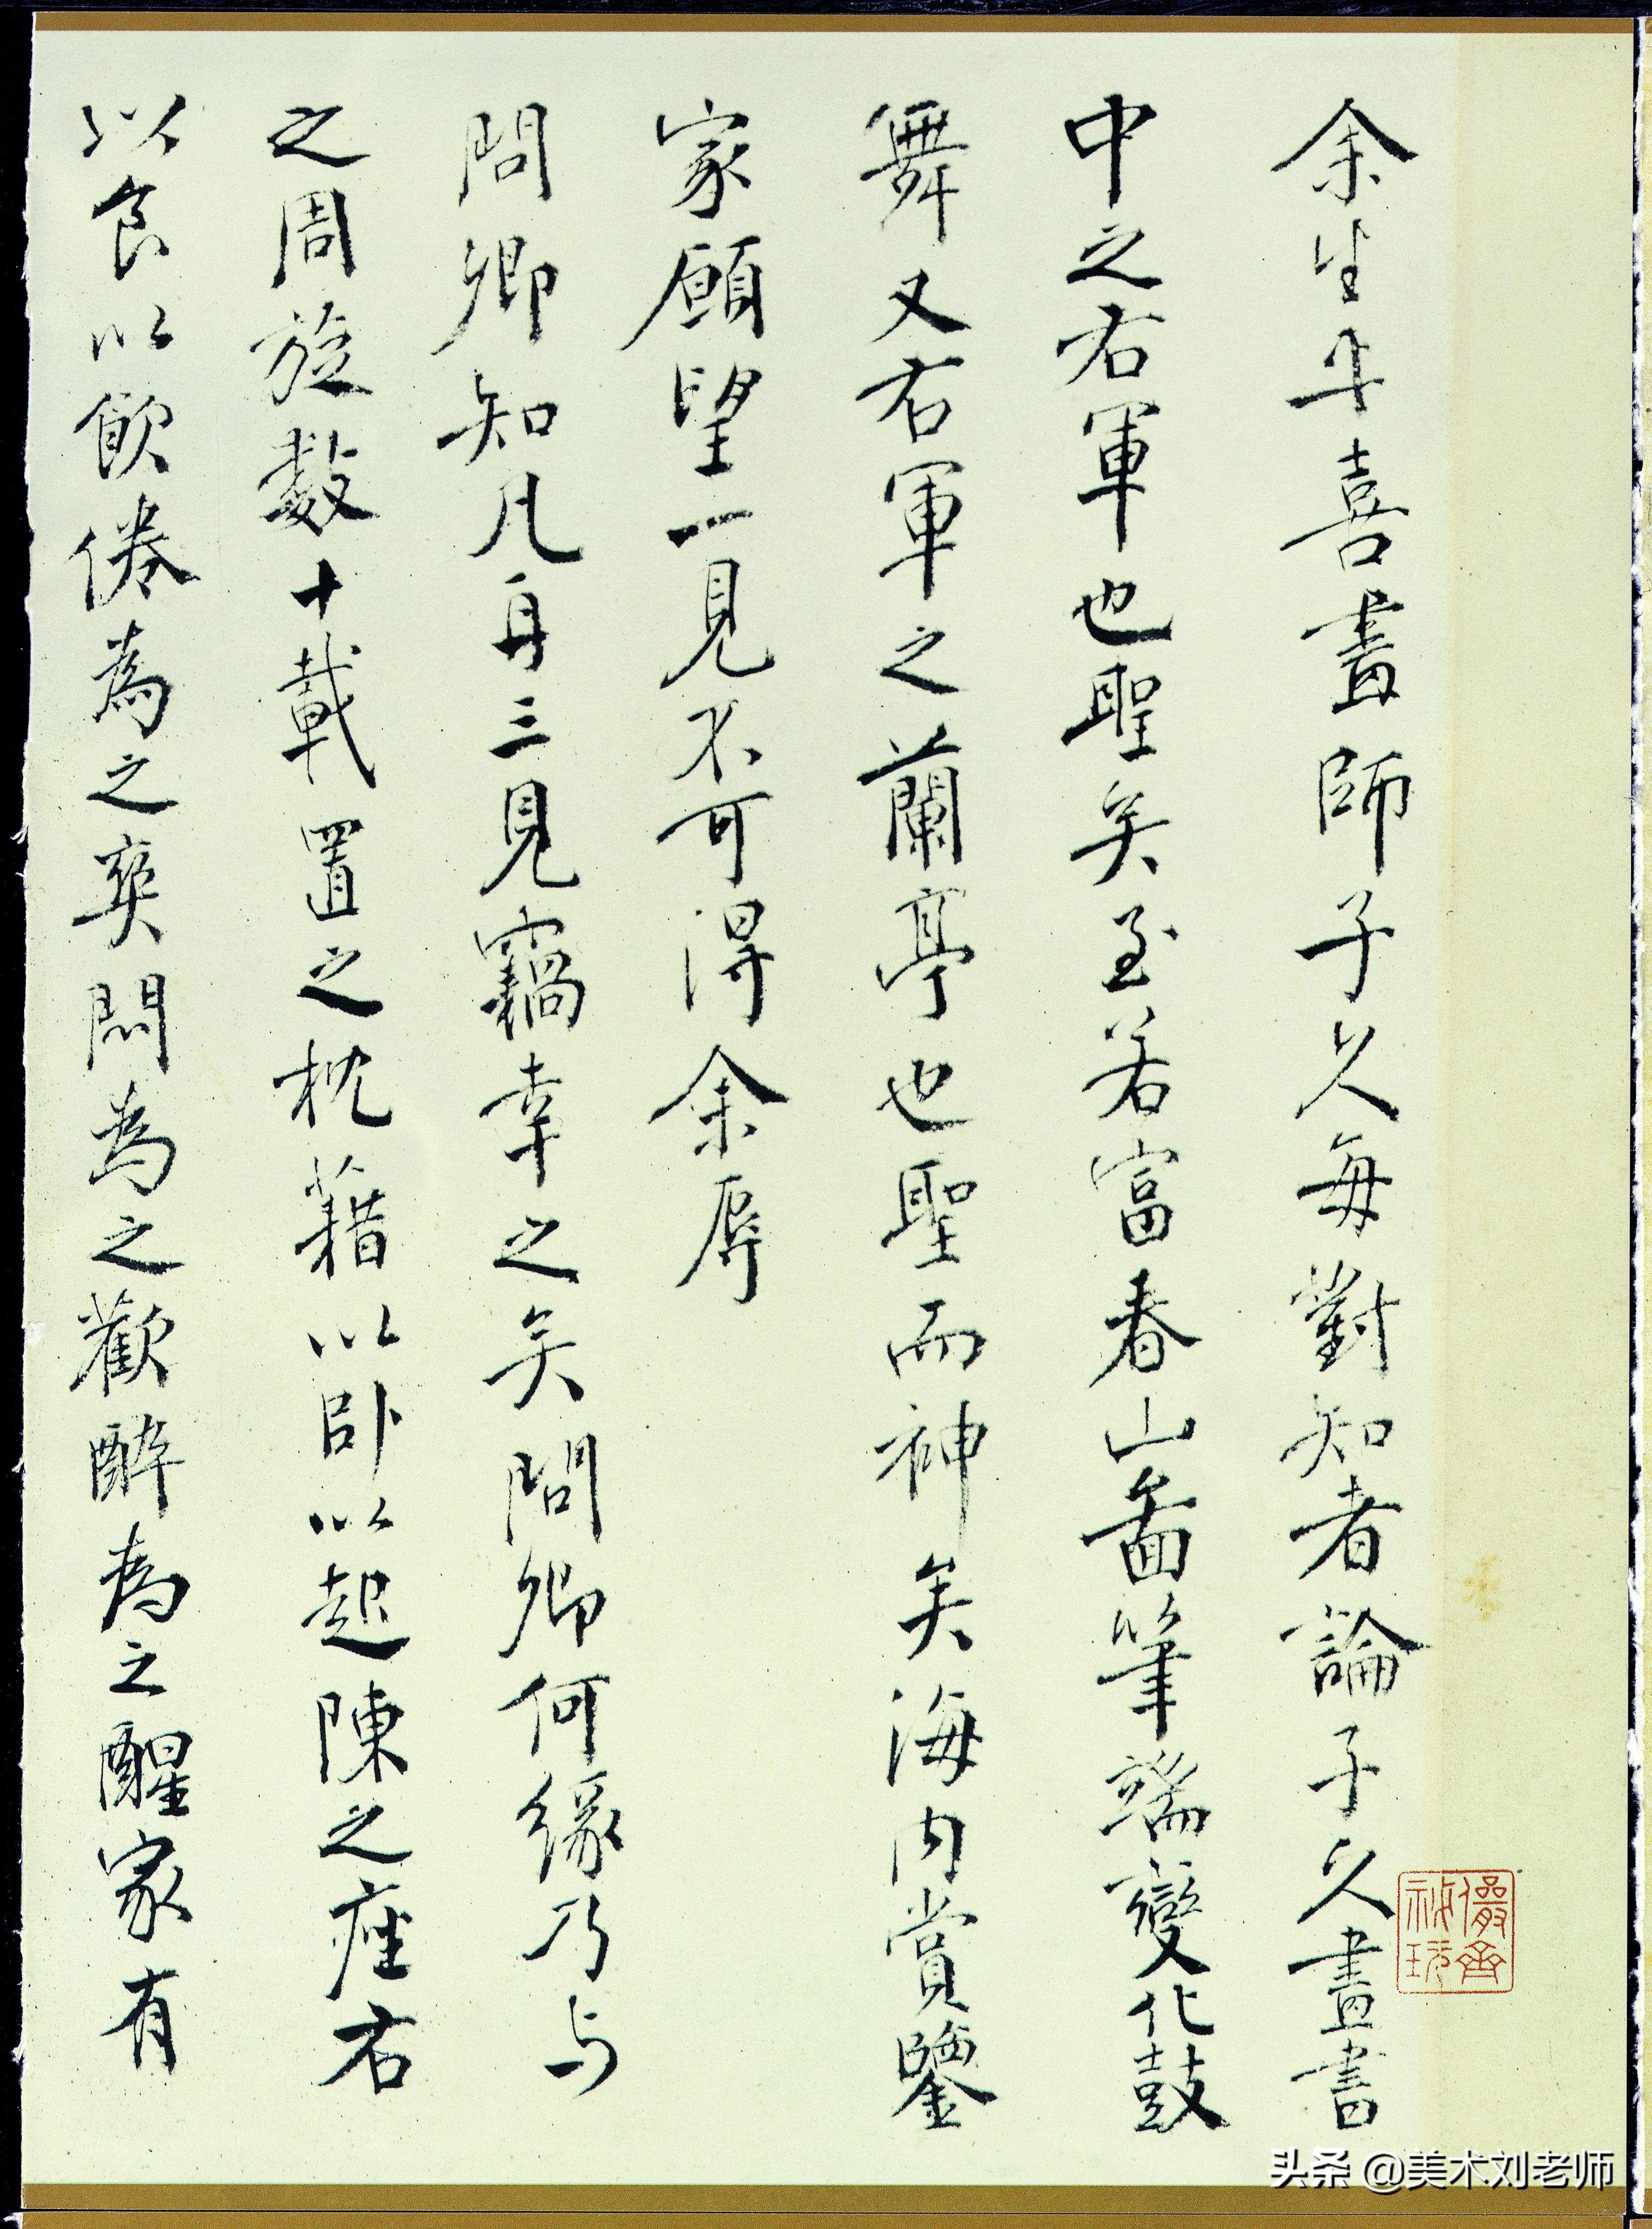 余生平喜畫師子久每對知者論子久畫書
中之右軍也聖矣至若富春山啚筆端變化鼓
舞又右軍之蘭亭也聖而神矣海内賞鑒
家願望一見不可得余辱
問卿知凡再三見竊幸之矣問卿何緣乃与
之周旋数十載置之枕藉以卧以起陳之座右
以食以飲倦為之爽悶為之歡醉為之醒家有
儼齋
秘玩
头条 @美术刘老师